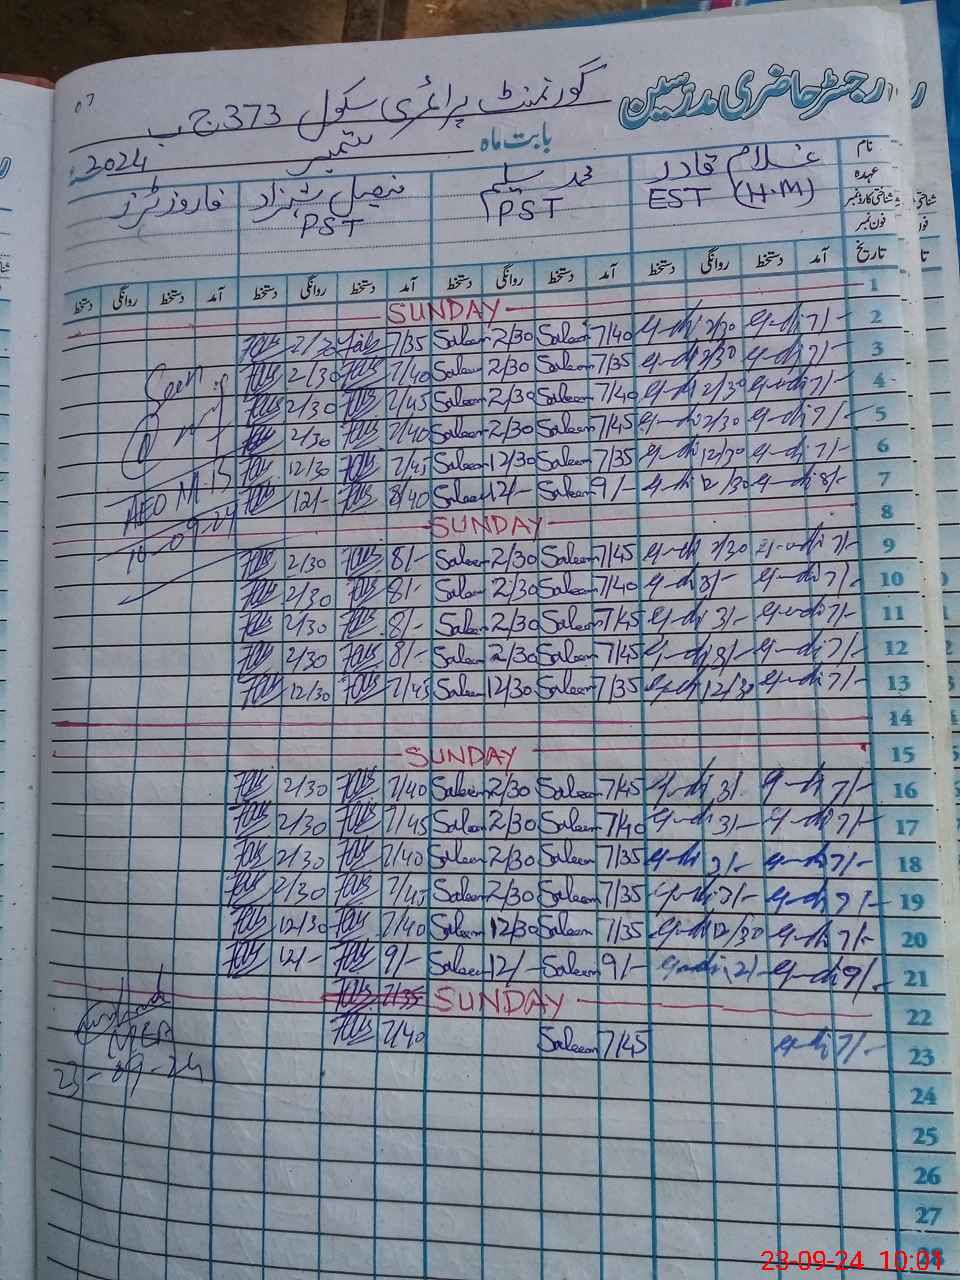 07
رجسٹر حاضری مدرسین
گورنمنٹ پرائمری سکول 373 ج ب
بابت ماہ ستمبر 2024ء
نام غلام قادر محمد سلیم فیصل شہزاد
عہدہ EST (H.M) PST PST
شناختی کارڈ نمبر
فون نمبر
تاریخ آمد دستخط روانگی دستخط آمد دستخط روانگی دستخط آمد دستخط روانگی دستخط آمد دستخط روانگی دستخط
SUNDAY 1
2/30 7/35 Saleem 2/30 Saleem 7/40 2/30 7/- 2
2/30 7/40 Saleem 2/30 Saleem 7/35 2/30 7/- 3
2/30 7/45 Saleem 2/30 Saleem 7/40 2/30 7/- 4
2/30 7/40 Saleem 2/30 Saleem 7/45 2/30 7/- 5
12/30 7/45 Saleem 12/30 Saleem 7/35 12/30 7/- 6
12/- 8/40 Saleem 12/- Saleem 9/- 12/30 8/- 7
SUNDAY 8
2/30 8/- Saleem 2/30 Saleem 7/45 2/30 7/- 9
2/30 8/- Saleem 2/30 Saleem 7/40 3/- 7/- 10
2/30 8/- Saleem 2/30 Saleem 7/45 3/- 7/- 11
2/30 8/- Saleem 2/30 Saleem 7/45 3/- 7/- 12
12/30 7/45 Saleem 12/30 Saleem 7/35 12/30 7/- 13
14
SUNDAY 15
2/30 7/40 Saleem 2/30 Saleem 7/45 3/- 7/- 16
2/30 7/45 Saleem 2/30 Saleem 7/40 3/- 7/- 17
2/30 7/40 Saleem 2/30 Saleem 7/35 3/- 7/- 18
2/30 7/45 Saleem 2/30 Saleem 7/35 3/- 7/- 19
12/30 7/40 Saleem 12/30 Saleem 7/35 12/30 7/- 20
12/- 9/- Saleem 12/- Saleem 9/- 12/- 9/- 21
7/35 SUNDAY 22
7/40 Saleem 7/45 7/- 23
24
25
26
27
28
Seen
AEO M-15
10-09-24
MEA
23-09-24
23-09-24 10:01